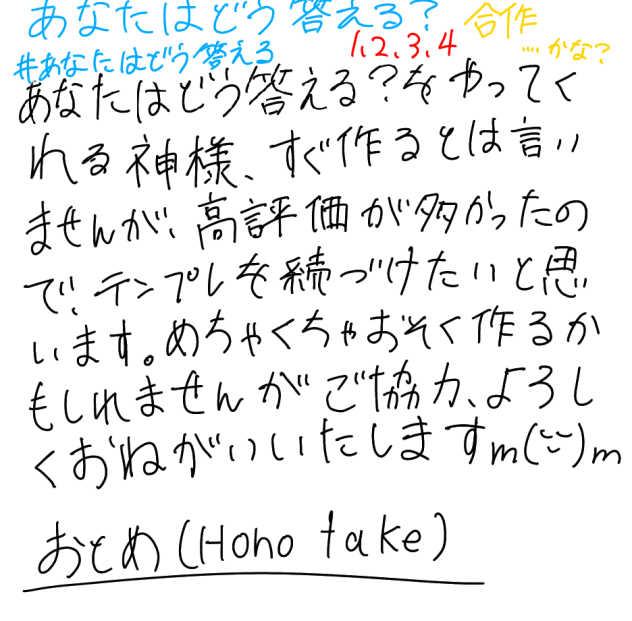 あなたはどう答える? 合作
#あなたはどう答える 1、2、3、4 ....かな?
あなたはどう答える?をやってく
れる神様、すぐ作るとは言い
ませんが、高評価が多かったの
で、テンプレを続づけたいと思
います。めちゃくちゃおそく作るか
もしれませんがご協力、よろし
くおねがいいたしますm(¨)m
おとめ(Hono take)